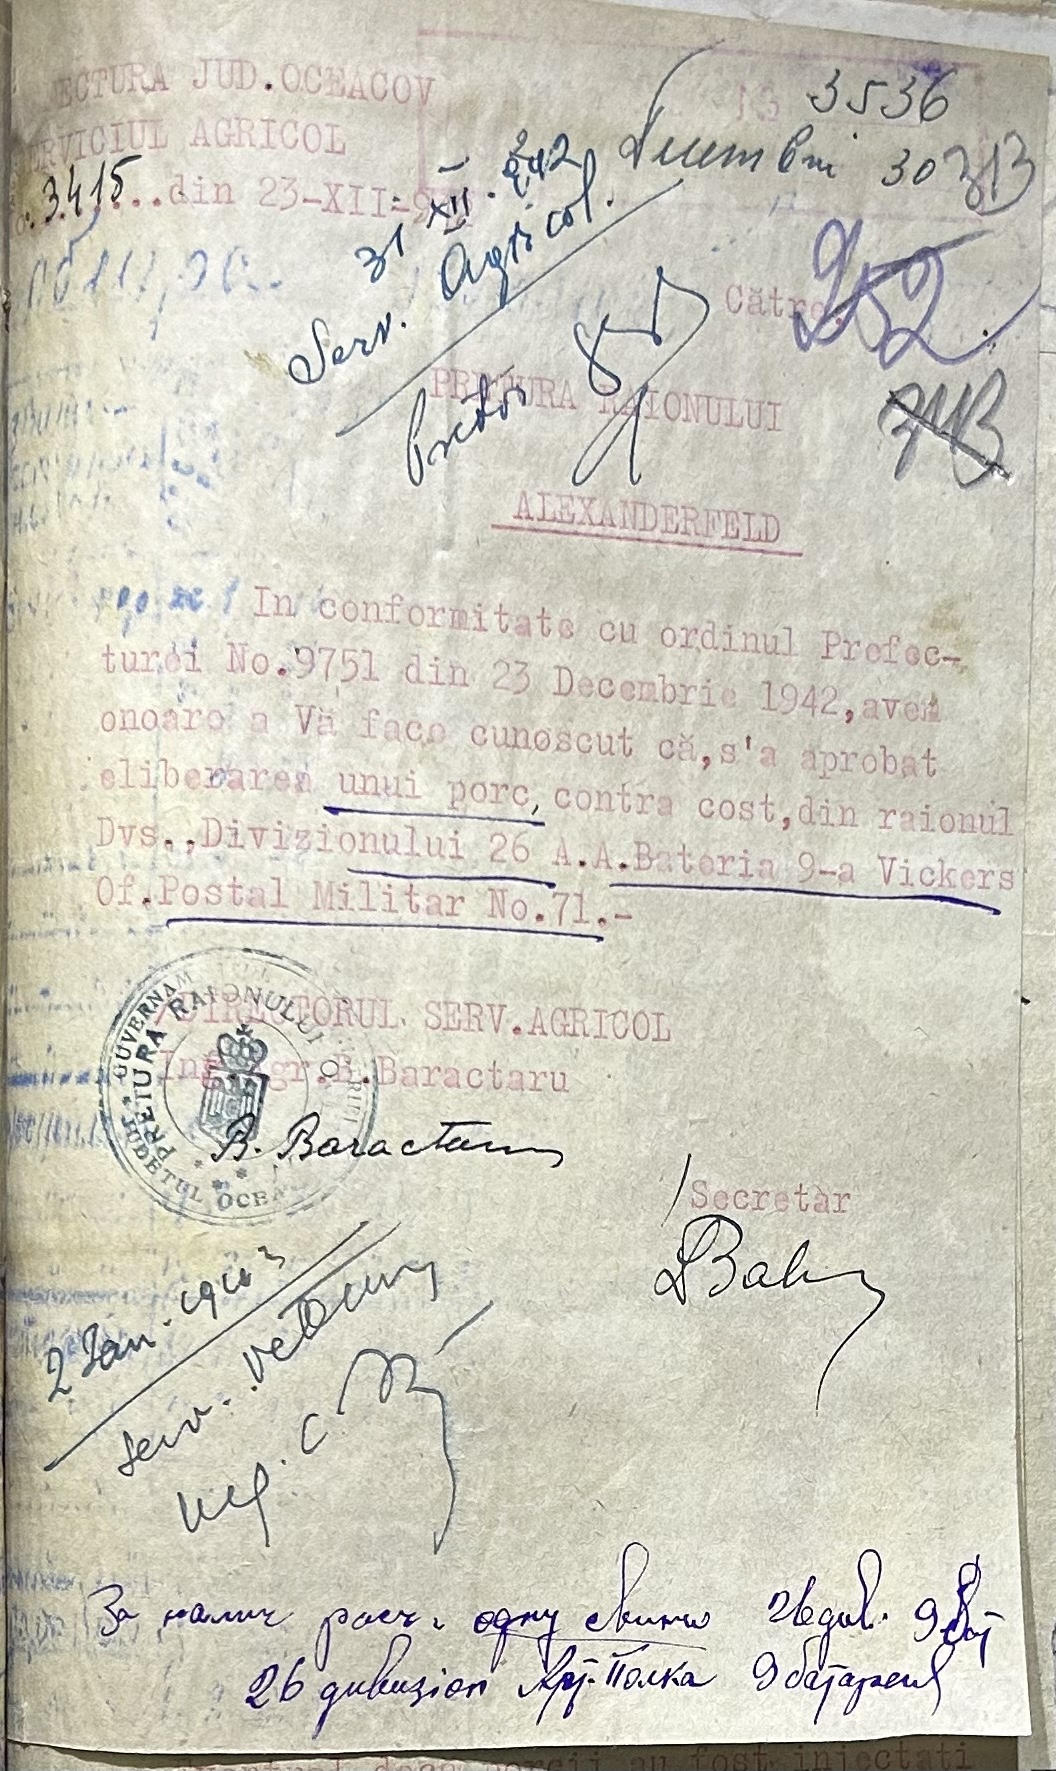 ECTURA JUD.OCEACOV
ERVICIUL AGRICOL
3415...din 23-XII-9
13
3536
Decembrie 30
313
31 XII. 942
Serv. Agricol.
Pretor
Către.
252
743
PRETURA RAIONULUI
ALEXANDERFELD
In conformitate cu ordinul Prefec-
turei No.9751 din 23 Decembrie 1942,avem
onoare a Vă face cunoscut că,s'a aprobat
eliberarea unui porc, contra cost,din raionul
Dvs.,Divizionului 26 A.A.Bateria 9-a Vickers
Of.Postal Militar No.71.-
/DIRECTORUL SERV.AGRICOL
Ing.Agr.B.Baractaru
B. Baractaru
GUVERNAM
PRETURA RAIONULUI
JUDETUL OCEA
/Secretar
2 Ian. 1943
serv. veterinar
За налич расч. одну свинью 26 див. 9 бат
26 дивизion Арт. Полка 9 батарея
au fost injectati